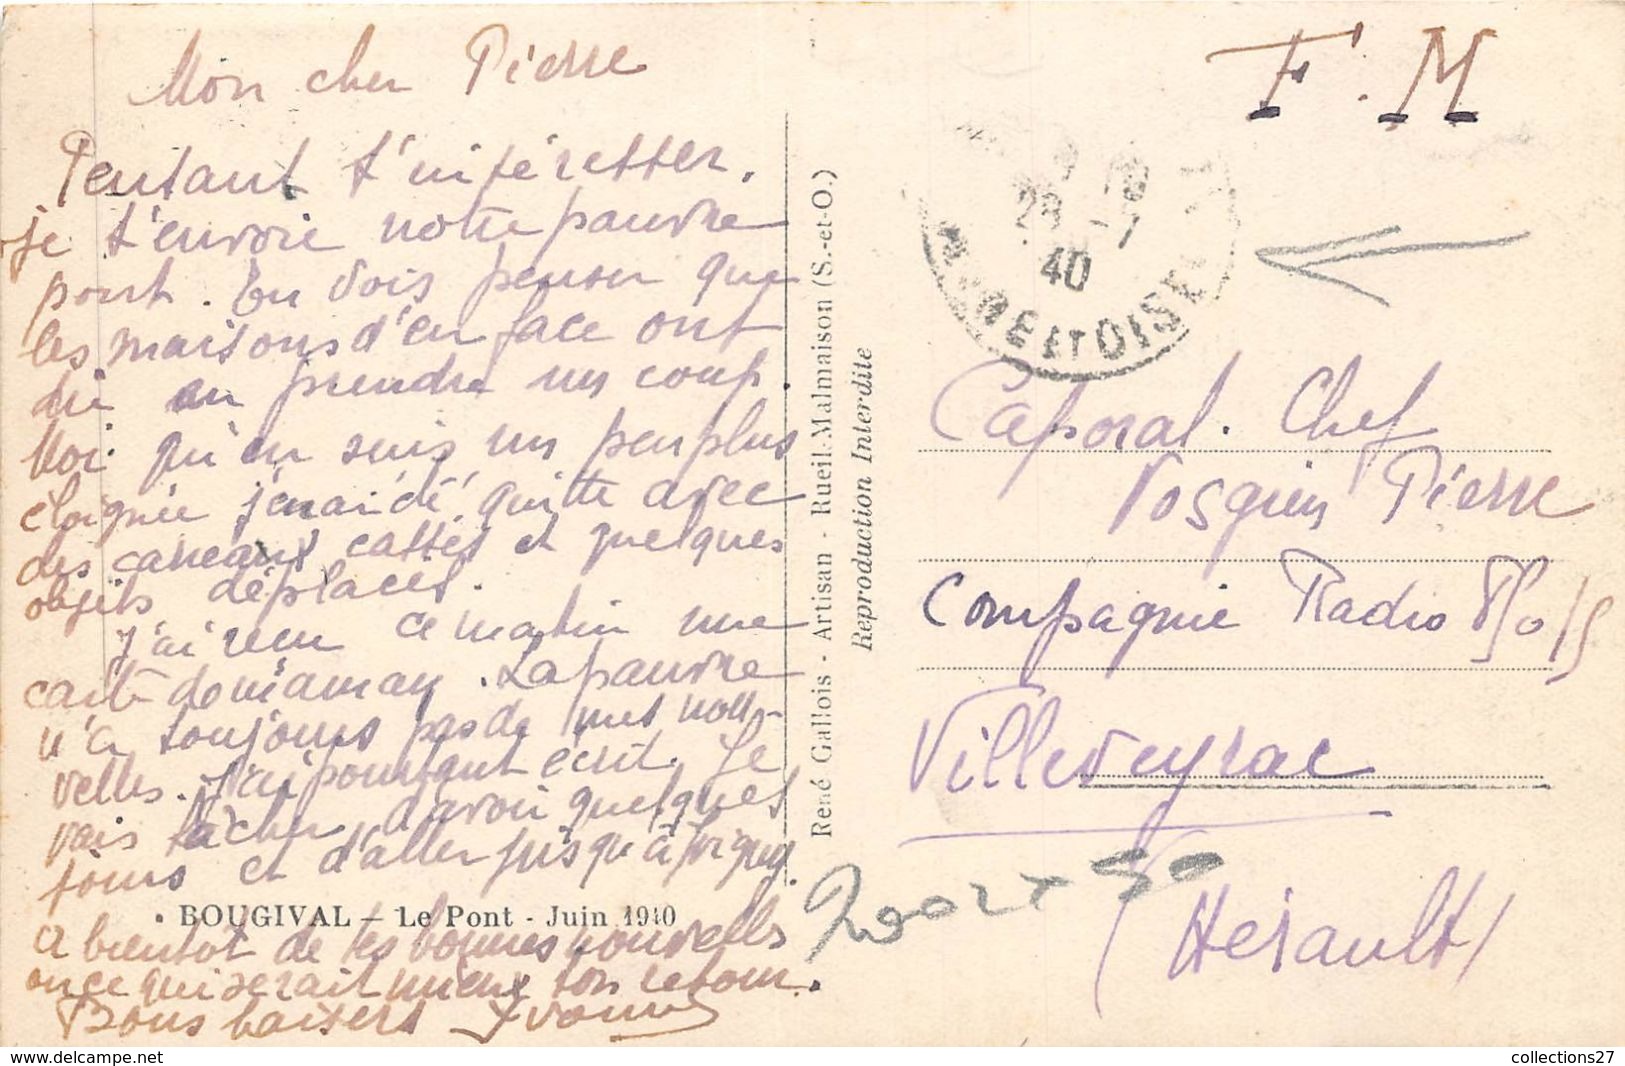 Mon cher Pierre
Pensant t'intéresser.
je t'envoie notre pauvre
pont. Tu dois penser que
les maisons d'en face ont
dû en prendre un coup.
Moi qui en suis un peu plus
éloignée j'en ai été quitte avec
des carreaux cassés et quelques
objets déplacés.
J'ai reçu ce matin une
carte de maman. La pauvre
n'a toujours pas de mes nou-
velles. J'ai pourtant écrit. Je
vais tâcher d'avoir quelques
jours et d'aller jusqu'à
BOUGIVAL - Le Pont - Juin 1940
A bientôt de tes bonnes nouvelles
ou ce qui serait mieux ton retour.
Bons baisers Yvonne
René Gallois - Artisan - Rueil-Malmaison (S.-et-O.)
Reproduction Interdite
F.M
28 -7
40
NE ET OISE
Caporal. Chef
Vosgien Pierre
Compagnie Radio
Villeveyrac
(Hérault)
collections27